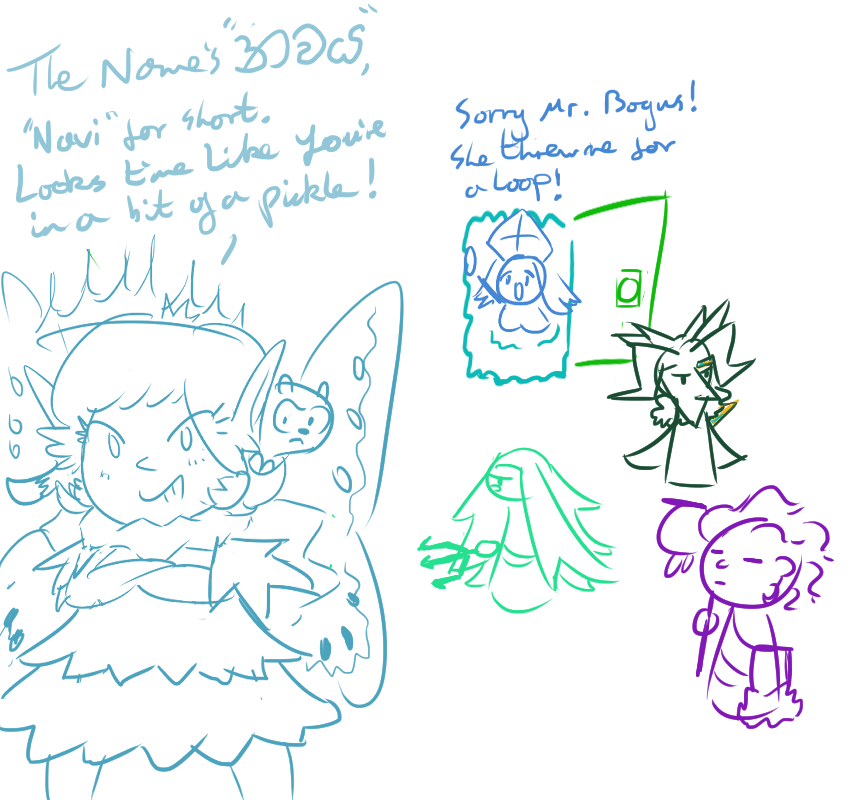 The Name's
"Navi" for short.
Looks time like you're
in a bit of a pickle!
Sorry Mr. Bogus!
She threw me for
a loop!